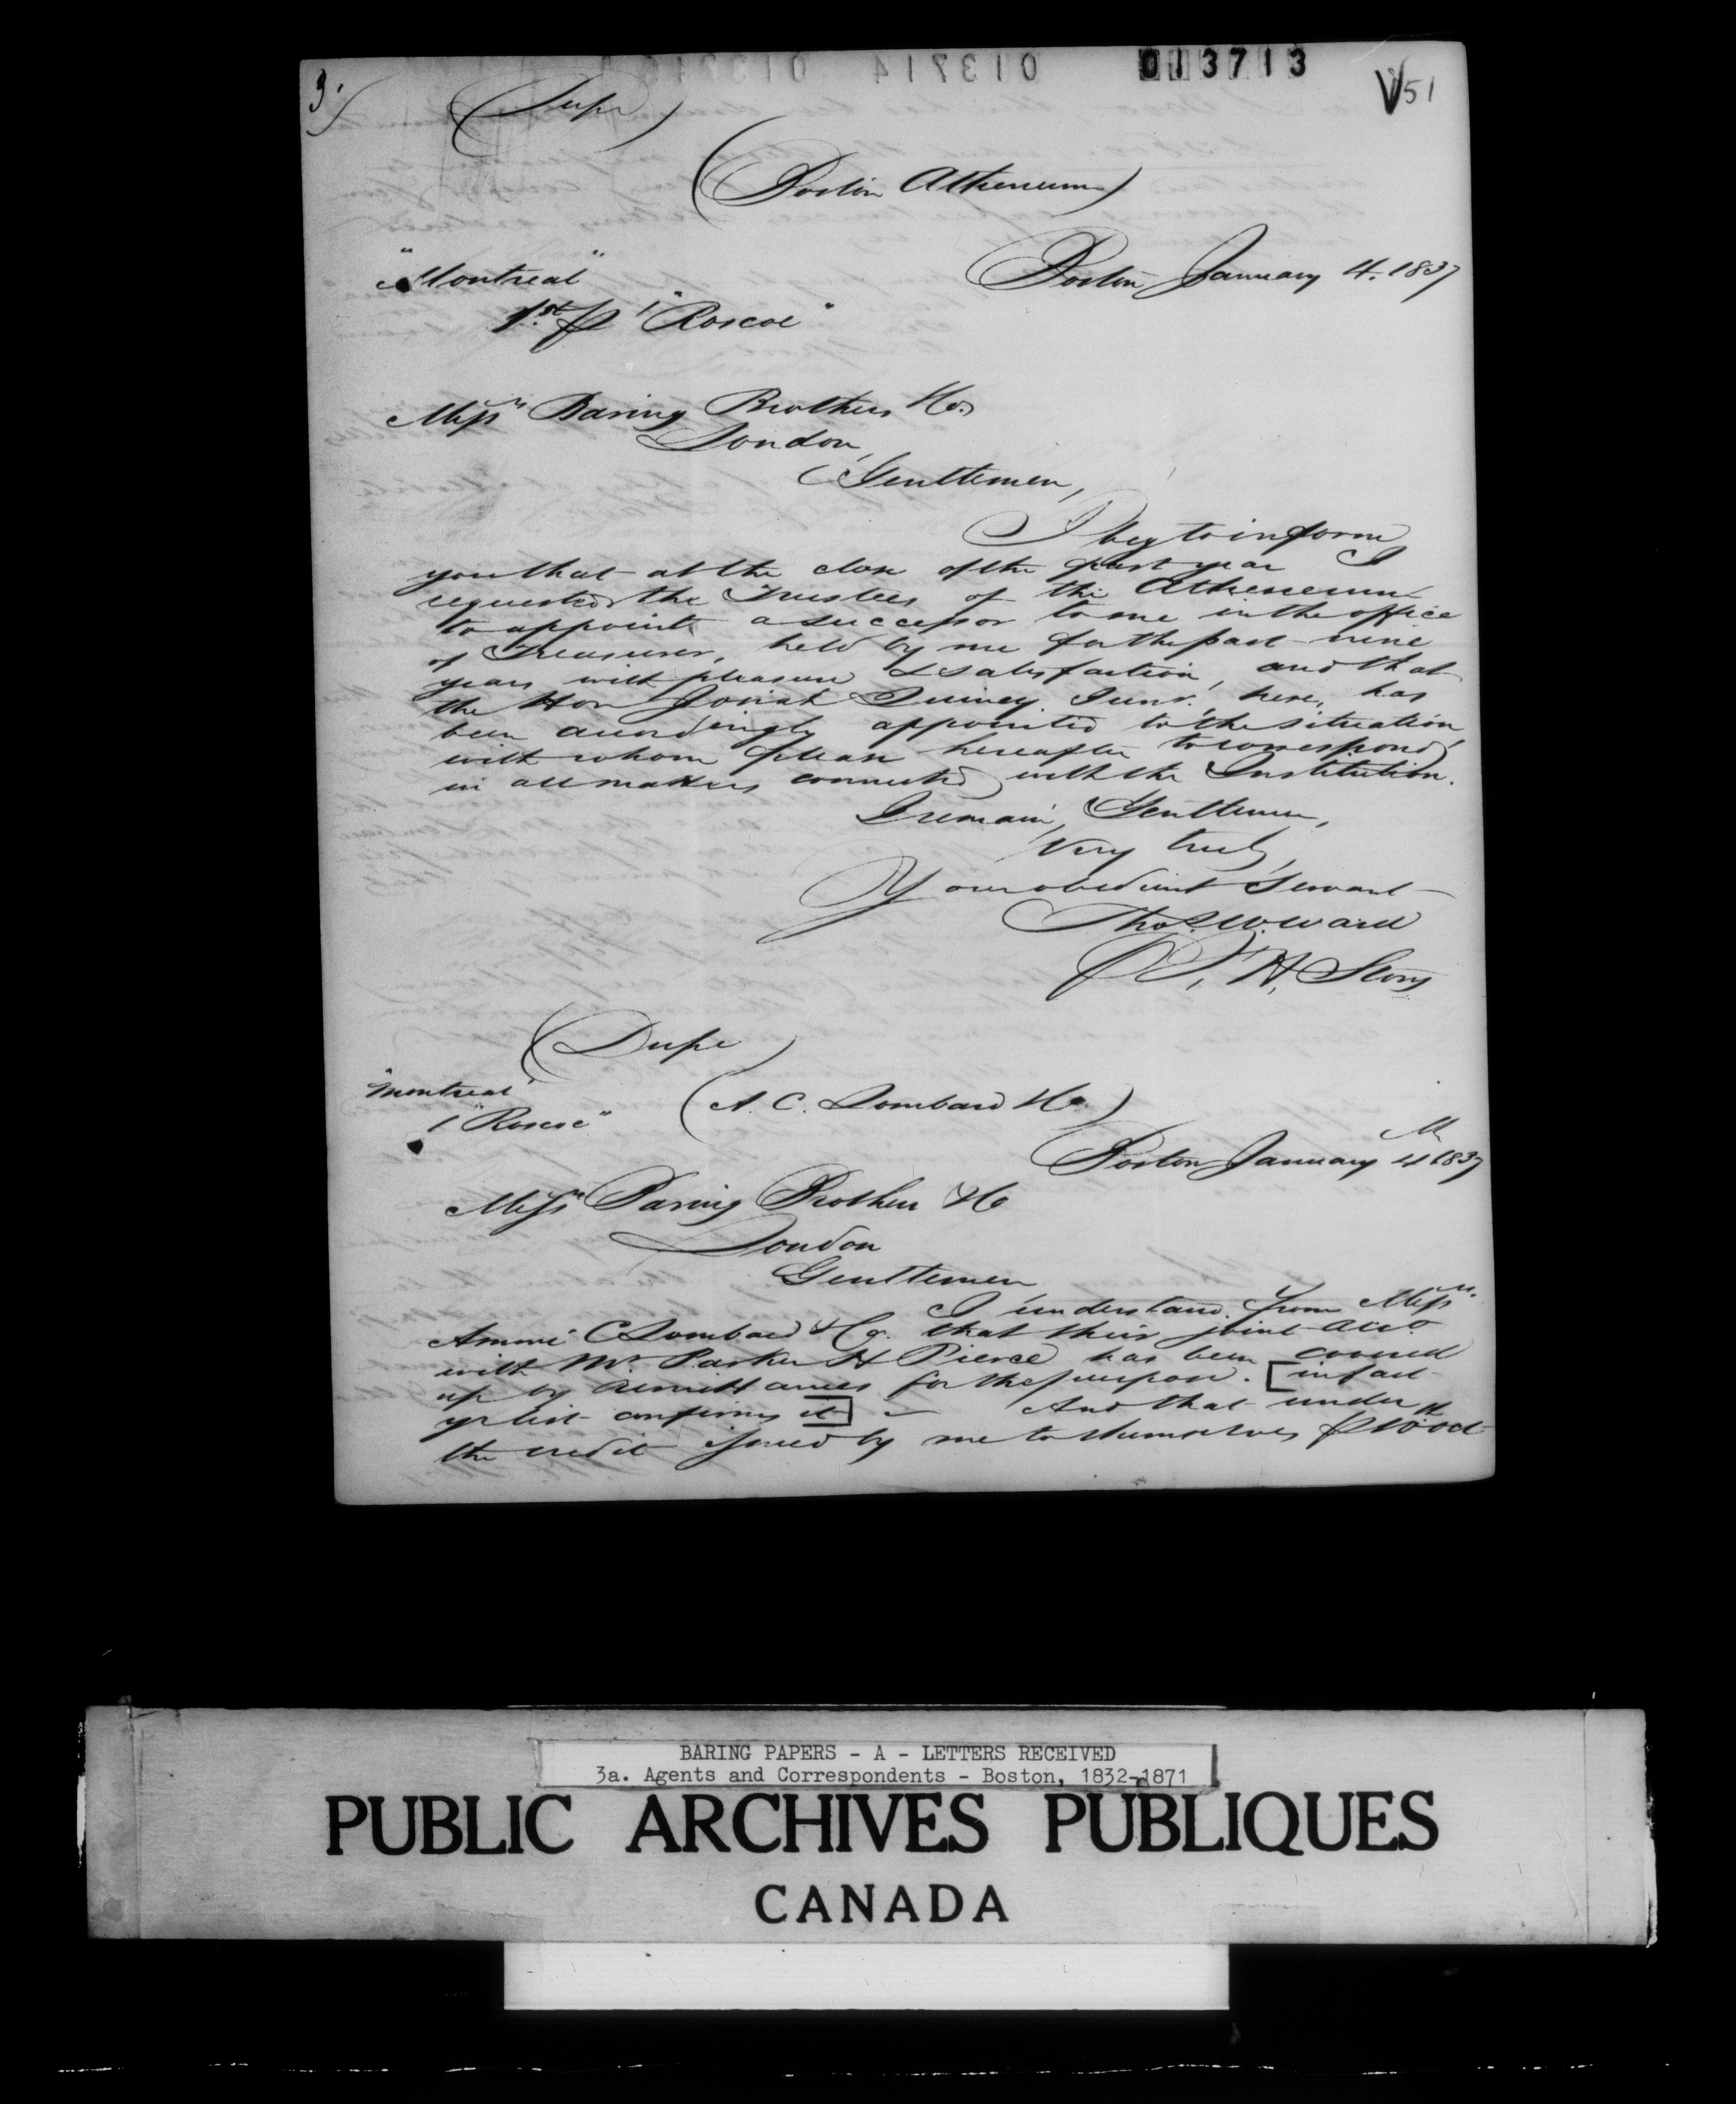 013713
3.
V51
(Dupe)
(Boston Athenaeum)
"Montreal"
Boston January 4. 1837
1st p "Roscoe"
Messrs Baring Brothers & Co.
London,
Gentlemen,
I beg to inform
you that at the close of the past year I
requested the Trustees of the Athenaeum
to appoint a successor to me in the office
of Treasurer, held by me for the past nine
years with pleasure & satisfaction, and that
the Hon Josiah Quincy Junr. here, has
been accordingly appointed to the situation,
with whom please hereafter to correspond
in all matters connected with the Institution.
I remain, Gentlemen,
Very truly,
Your obedient Servant
Thos. W. Ward
P F. H. Story
(Dupe)
"Montreal"
1 "Roscoe"
(A. C. Lombard & Co.)
Boston January 4 1837
Messrs Baring Brothers & Co
London
Gentlemen
I understand from Messrs.
Ammi C Lombard & Co. that their joint acct.
with Mr Parker H Pierce has been covered
up by remittances for the purpose. [in fact
yr list confirms it] And that under
the credit issued by me to themselves
BARING PAPERS - A - LETTERS RECEIVED
3a. Agents and Correspondents - Boston, 1832-1871
PUBLIC ARCHIVES PUBLIQUES
CANADA